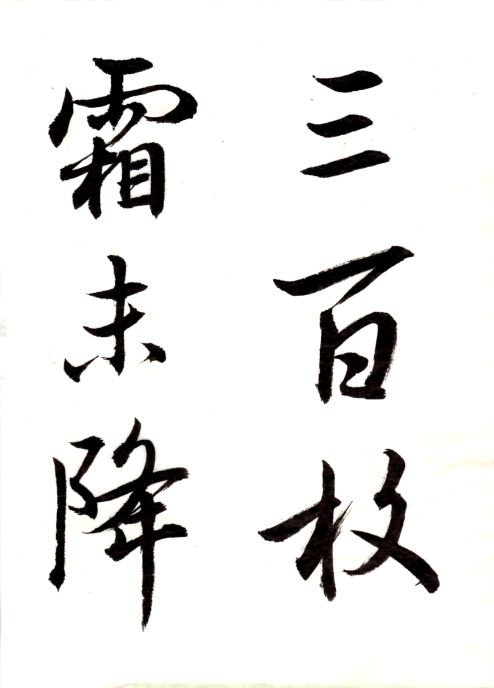 三百枚
霜未降